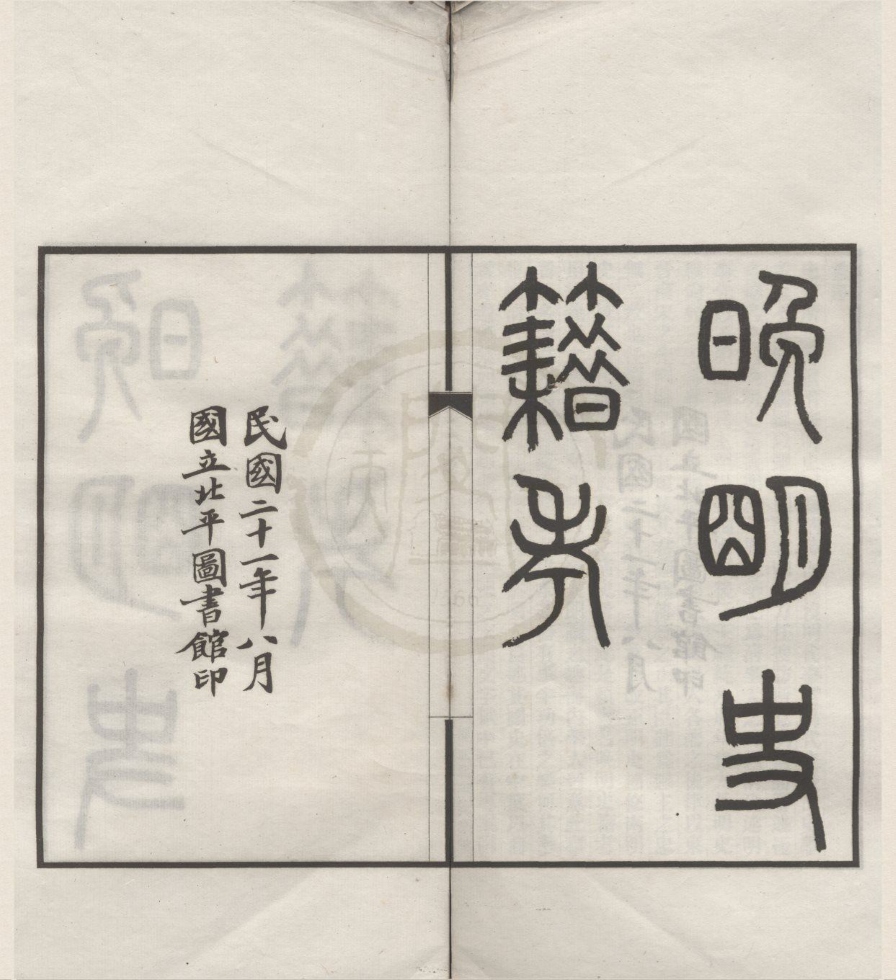 晚明史
籍考
民國二十一年八月
國立北平圖書館印